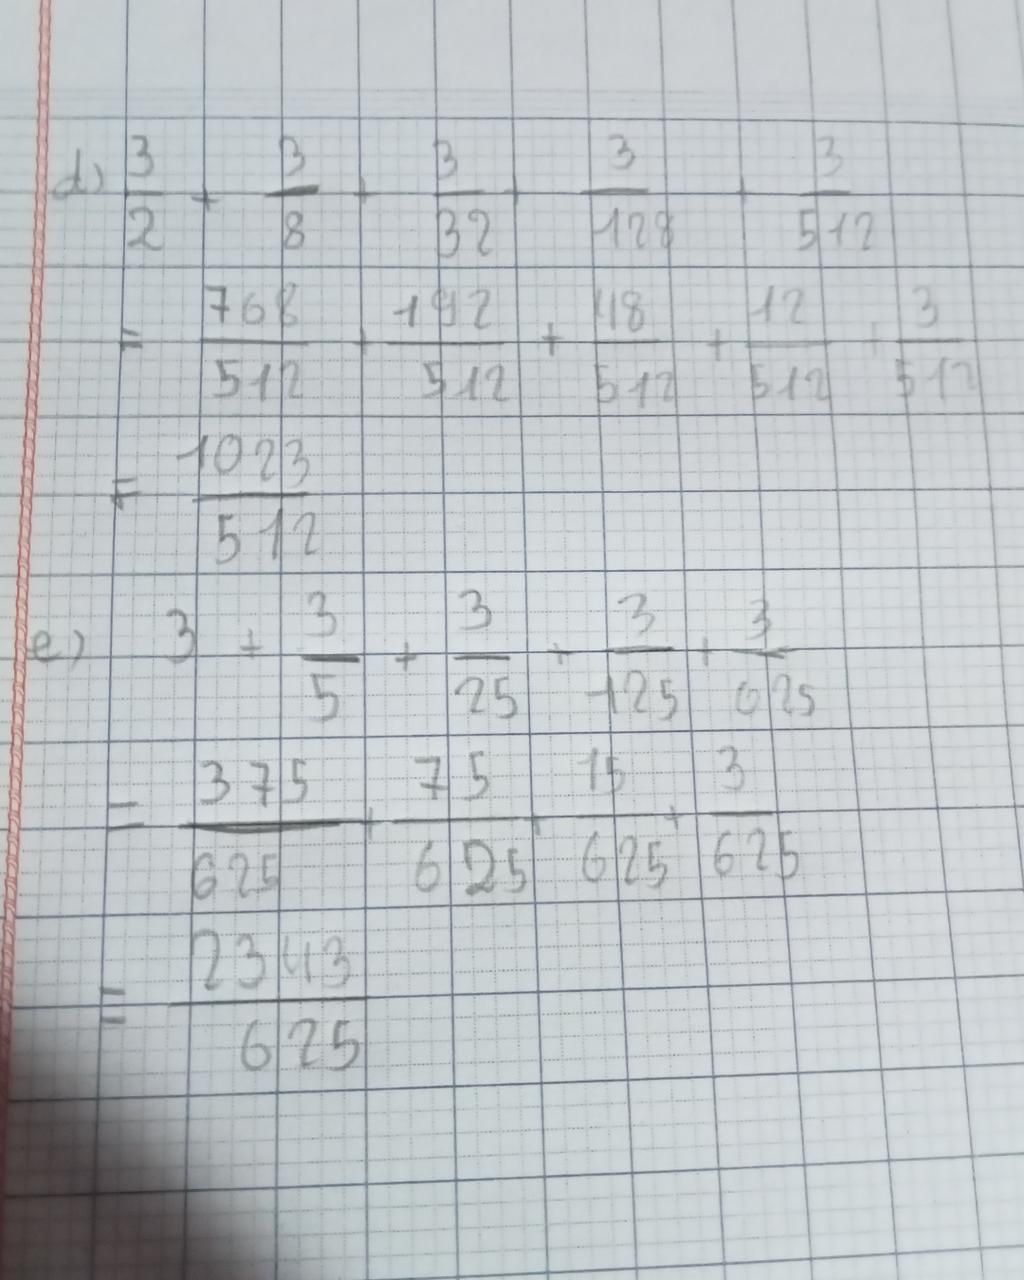 d) 3/2 + 3/8 + 3/32 + 3/128 + 3/512
= 768/512 + 192/512 + 48/512 + 12/512 + 3/512
= 1023/512
e) 3 + 3/5 + 3/25 + 3/125 + 3/625
= 375/625 + 75/625 + 15/625 + 3/625
= 2343/625